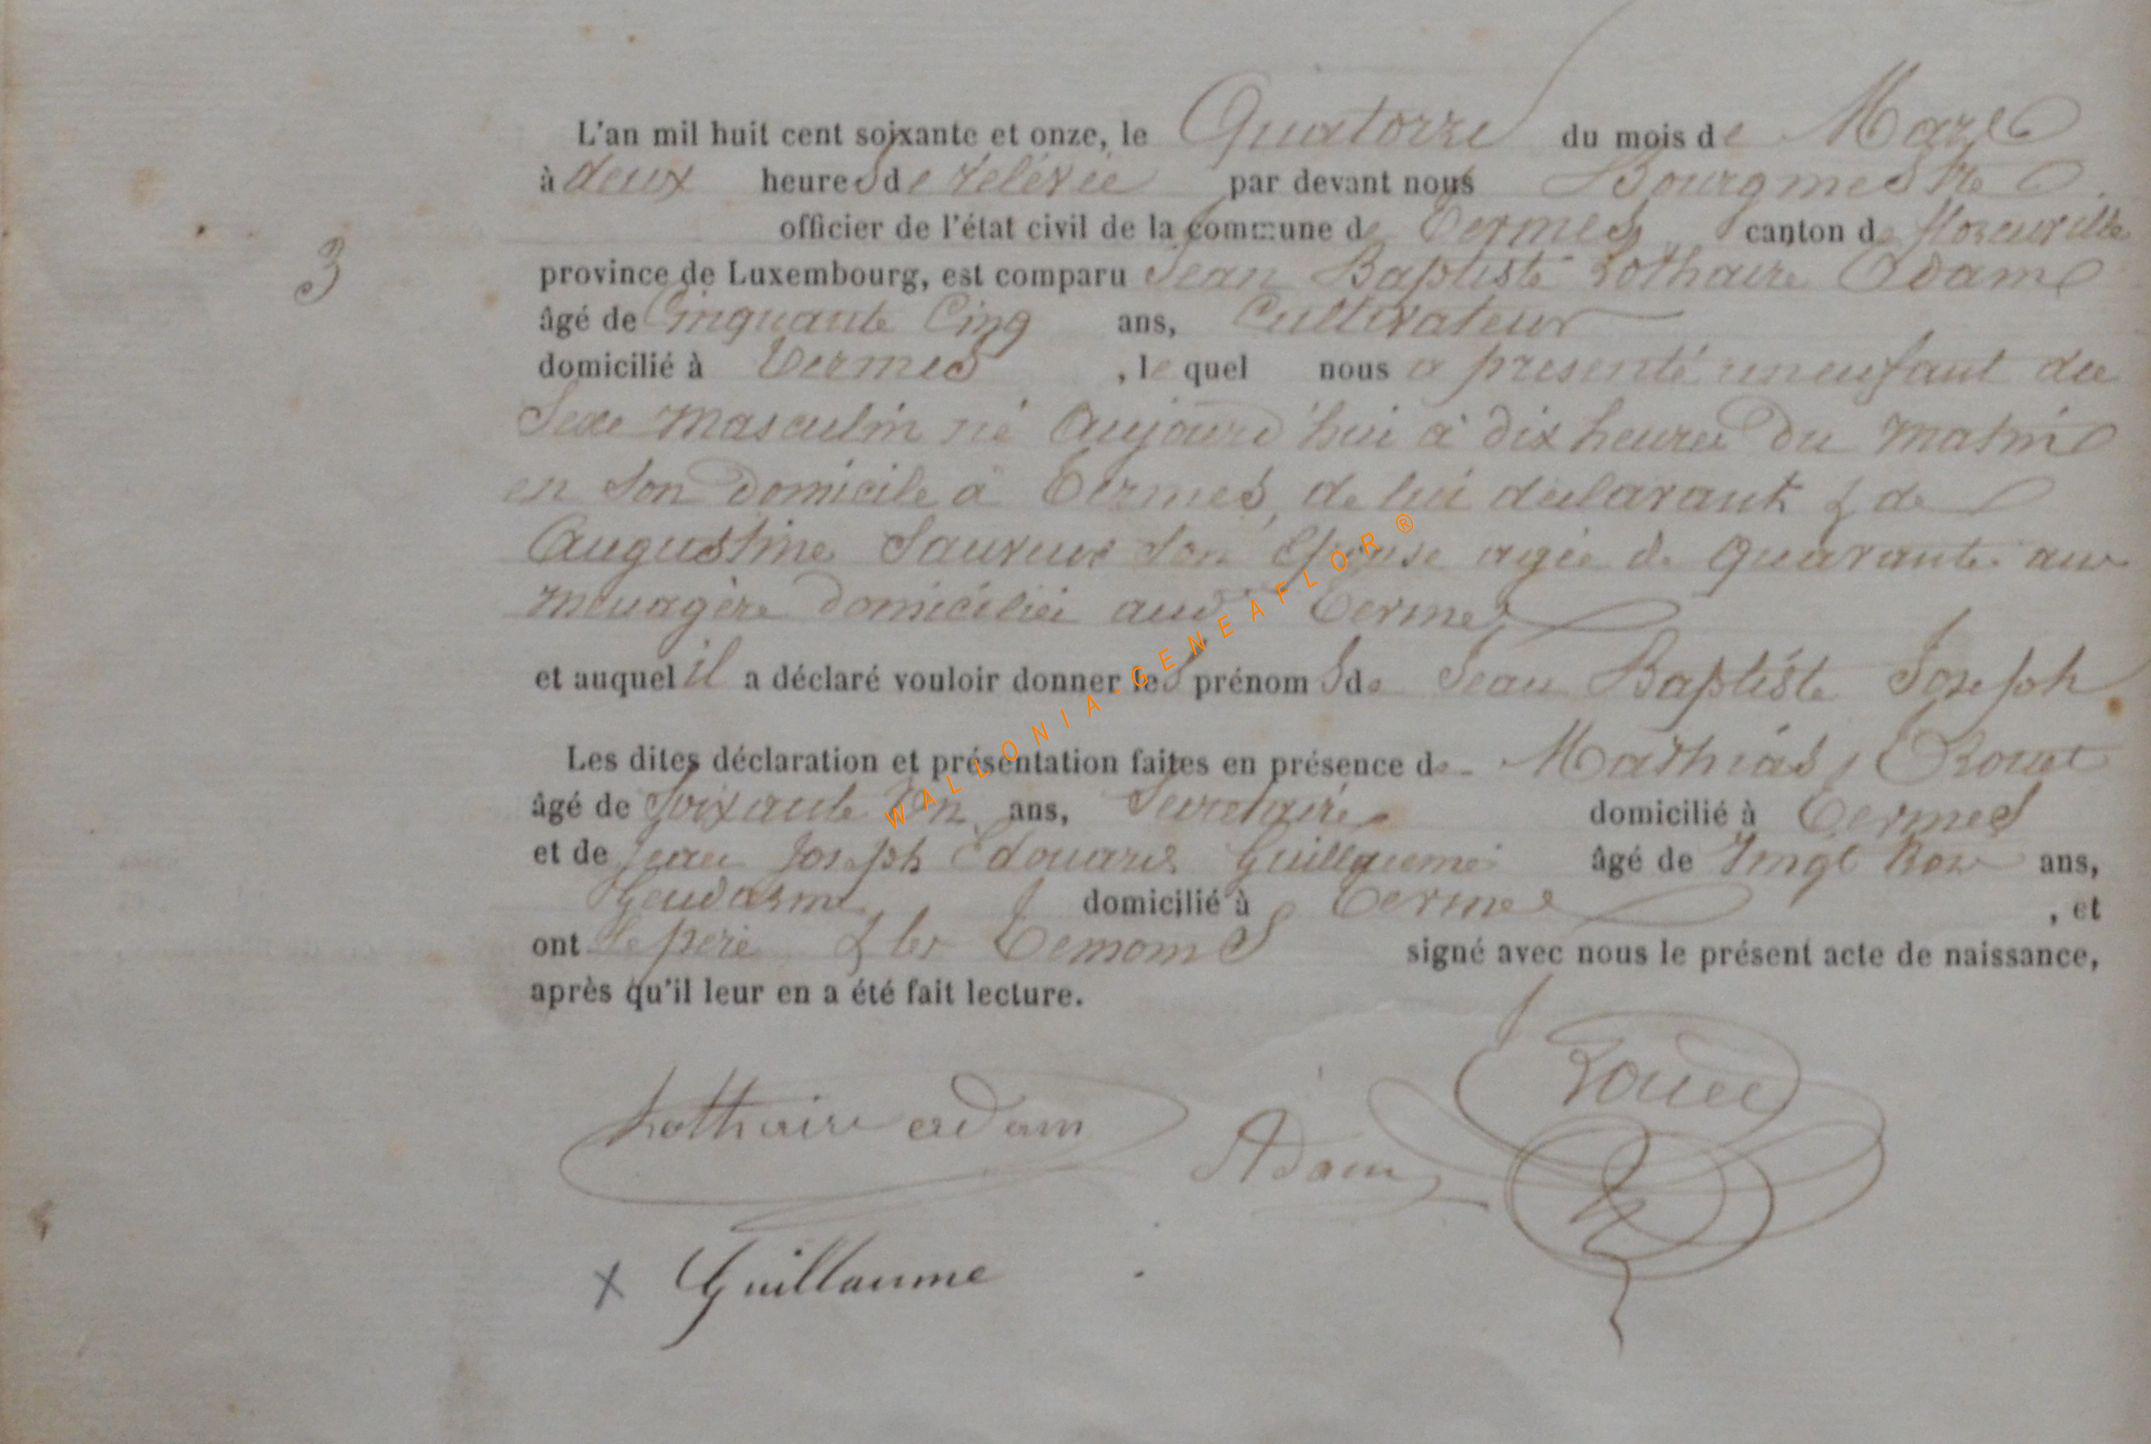 L'an mil huit cent soixante et onze, le Quatorze du mois de Mars
à deux heures de relévée par devant nous Bourgmestre
officier de l'état civil de la commune de Termes canton de florenville
3
province de Luxembourg, est comparu Jean Baptiste Lothaire Adam
âgé de Cinquante Cinq ans, Cultivateur
domicilié à Termes, le quel nous a presenté un enfant du
Sexe masculin né aujourd'hui à dix heures du matin
en son domicile à Termes, de lui déclarant & de
Augustine son Epouse agée de quarante ans
menagère domiciliés aud. Termes
et auquel il a déclaré vouloir donner les prénoms de Jean Baptiste Joseph
Les dites déclaration et présentation faites en présence de Mathias Rouet
âgé de Soixante Un ans, Secretaire domicilié à Termes
et de Jean Joseph Edouard Guillaume âgé de Vingt ans,
Gendarme domicilié à Termes, et
ont le pere & les Temoins signé avec nous le présent acte de naissance,
après qu'il leur en a été fait lecture.
Lothaire adam Adam Rouet
x Guillaume
WALLONIA-GENEAFLOR®